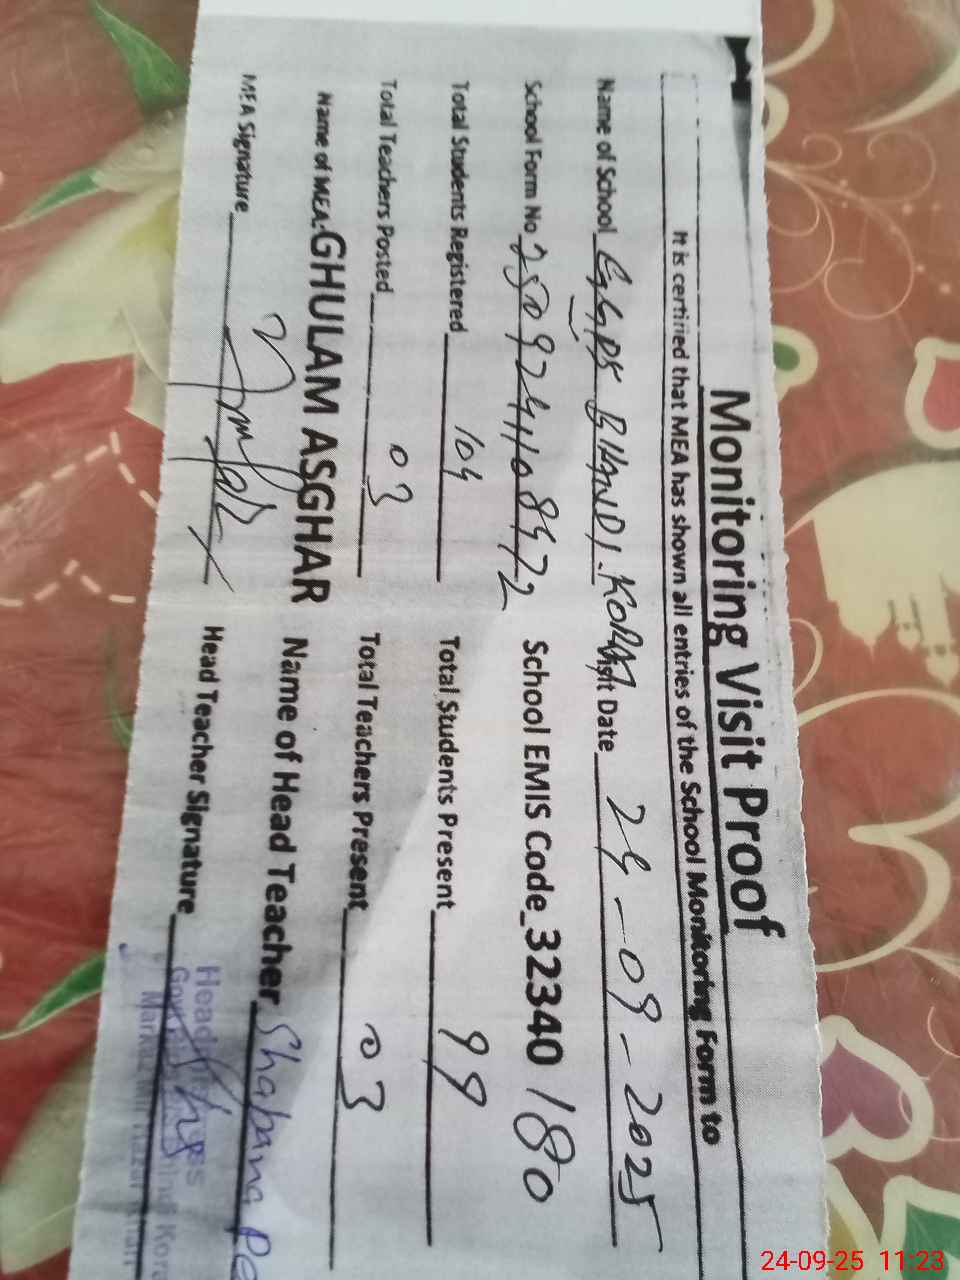 Monitoring Visit Proof
It is certified that MEA has shown all entries of the School Monitoring Form to
Name of School GGPS BHANDI KORAI Visit Date 24-09-2025
School Form No School EMIS Code_32340180
Total Students Registered 104 Total Students Present 99
Total Teachers Posted 03 Total Teachers Present 03
Name of MEA: GHULAM ASGHAR Name of Head Teacher Shabana
MEA Signature Head Teacher Signature
24-09-25 11:23